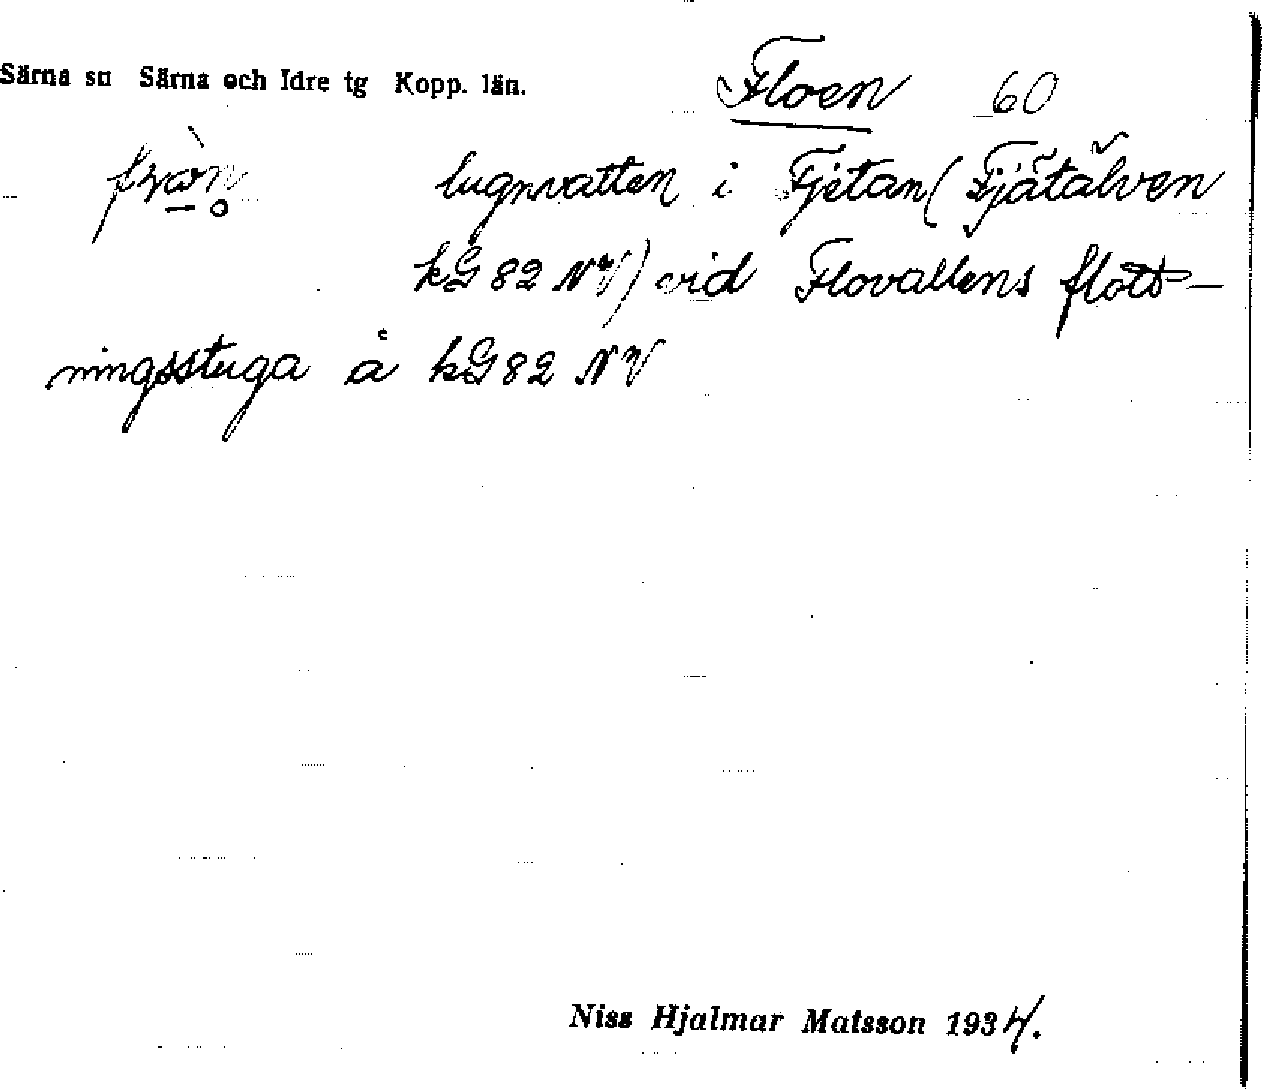 Särna sn Särna och Idre tg Kopp. län.
Floen 60
lugnvatten i Fjetan (Fjätälven
kG 82 NV) vid Flovallens flott-
ningsstuga å kG 82 NV
Niss Hjalmar Matsson 1934.